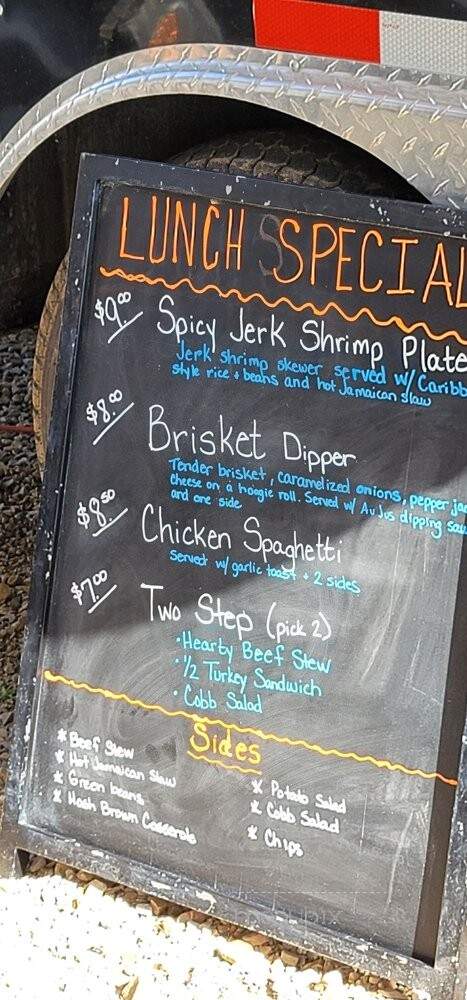 LUNCH SPECIAL
$9.00 Spicy Jerk Shrimp Plate
Jerk shrimp skewer served w/ Caribb
style rice + beans and hot Jamaican slaw
$8.00 Brisket Dipper
Tender brisket, caramelized onions, pepper ja
cheese on a hoagie roll. Served w/ Au Jus dipping sau
and one side
$8.50 Chicken Spaghetti
Served w/ garlic toast + 2 sides
$7.00 Two Step (pick 2)
· Hearty Beef Stew
· 1/2 Turkey Sandwich
· Cobb Salad
Sides
* Beef Stew
* Hot Jamaican Slaw
* Green beans
* Hash Brown Casserole
* Potato Salad
* Cobb Salad
* Chips